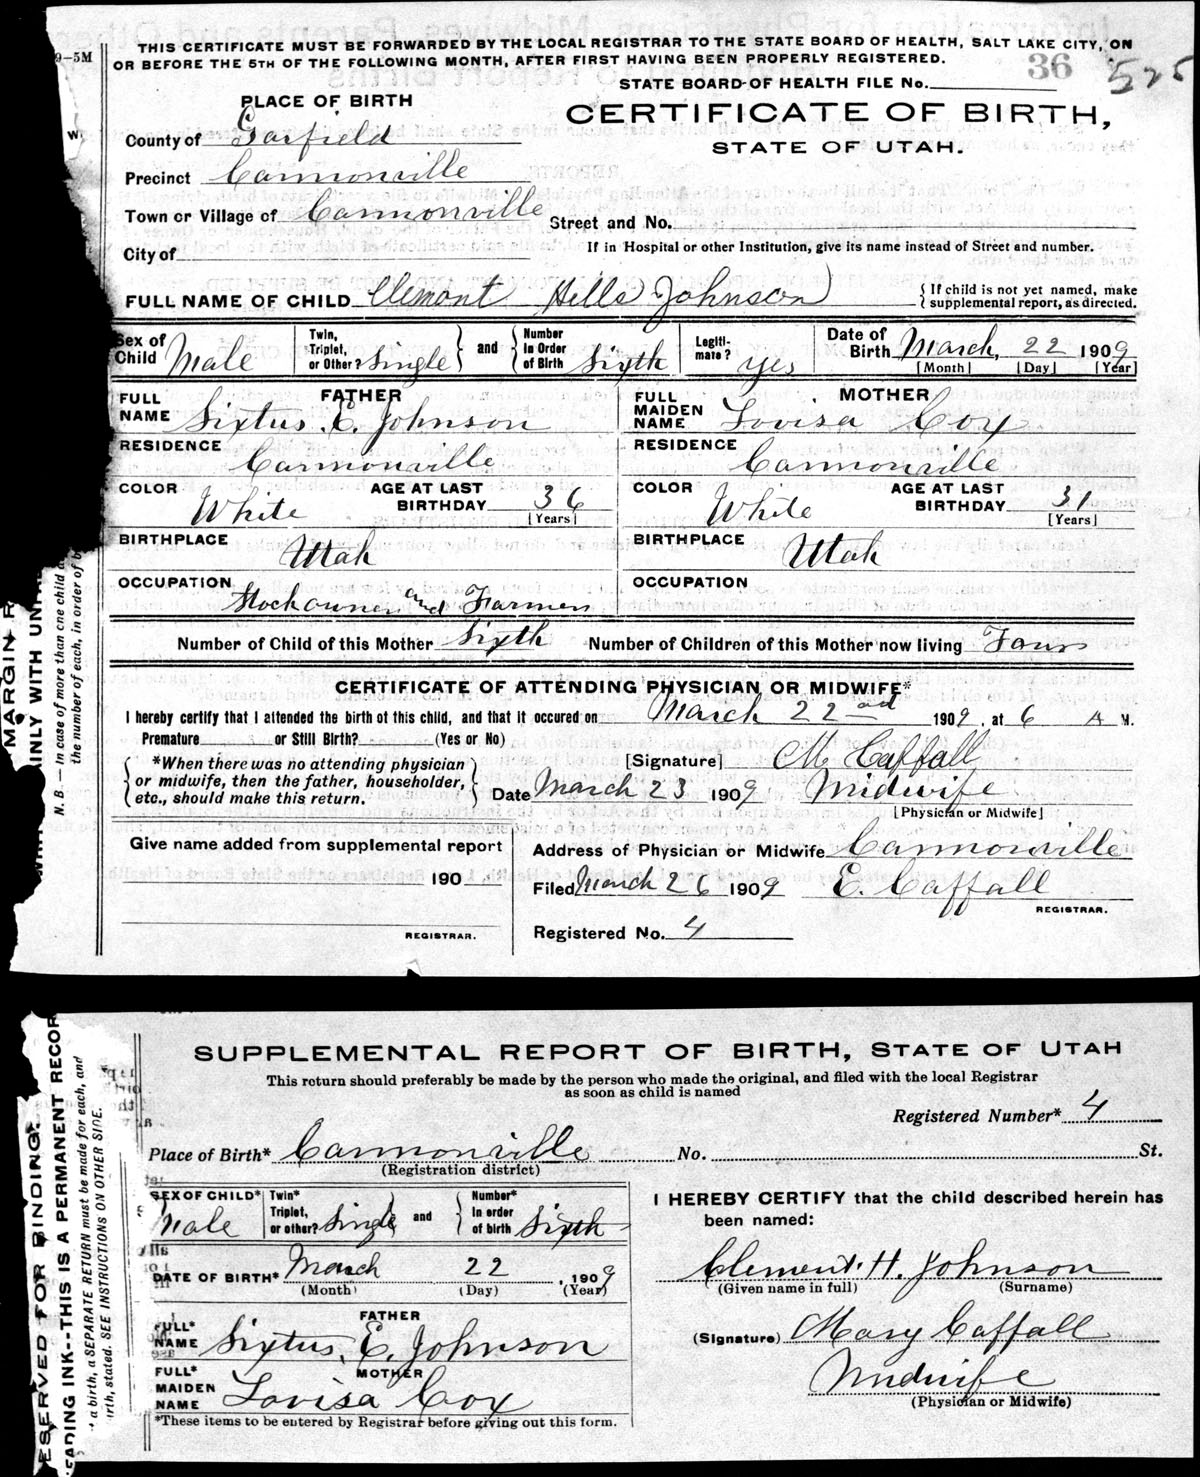 THIS CERTIFICATE MUST BE FORWARDED BY THE LOCAL REGISTRAR TO THE STATE BOARD OF HEALTH, SALT LAKE CITY, ON
9-5M OR BEFORE THE 5TH OF THE FOLLOWING MONTH, AFTER FIRST HAVING BEEN PROPERLY REGISTERED.
36 525
STATE BOARD OF HEALTH FILE No.
PLACE OF BIRTH
CERTIFICATE OF BIRTH,
STATE OF UTAH.
County of Garfield
Precinct Cannonville
Town or Village of Cannonville Street and No.
City of If in Hospital or other Institution, give its name instead of Street and number.
FULL NAME OF CHILD Clemont Hills Johnson { If child is not yet named, make supplemental report, as directed.
Sex of Child Male Twin, Triplet, or Other? Single and Number in Order of Birth Sixth Legiti-mate? yes Date of Birth March, 22 1909
[Month] [Day] [Year]
FATHER MOTHER
FULL NAME Sixtus. E. Johnson FULL MAIDEN NAME Lovisa Cox
RESIDENCE Cannonville RESIDENCE Cannonville
COLOR White AGE AT LAST BIRTHDAY 36 [Years] COLOR White AGE AT LAST BIRTHDAY 31 [Years]
BIRTHPLACE Utah BIRTHPLACE Utah
OCCUPATION Stockowner and Farmer OCCUPATION
Number of Child of this Mother Sixth Number of Children of this Mother now living Four
CERTIFICATE OF ATTENDING PHYSICIAN OR MIDWIFE*
I hereby certify that I attended the birth of this child, and that it occured on March 22nd 1909, at 6 A M.
Premature or Still Birth? (Yes or No)
*When there was no attending physician
or midwife, then the father, householder,
etc., should make this return.
[Signature] M Caffall
Date March 23 1909 Midwife
[Physician or Midwife]
Give name added from supplemental report
190
REGISTRAR.
Address of Physician or Midwife Cannonville
Filed March 26 1909 E. Caffall
REGISTRAR.
Registered No. 4
N. B.— In case of more than one child
the number of each, in order of b
SUPPLEMENTAL REPORT OF BIRTH, STATE OF UTAH
This return should preferably be made by the person who made the original, and filed with the local Registrar
as soon as child is named
Registered Number* 4
Place of Birth* Cannonville No. St.
(Registration district)
SEX OF CHILD* Male Twin* Triplet, or other? Single and Number* In order of birth Sixth
DATE OF BIRTH* March 22, 1909
(Month) (Day) (Year)
FATHER
FULL* NAME Sixtus. E. Johnson
MOTHER
FULL* MAIDEN NAME Lovisa Cox
*These items to be entered by Registrar before giving out this form.
I HEREBY CERTIFY that the child described herein has
been named:
Clement. H. Johnson
(Given name in full) (Surname)
(Signature) Mary Caffall
Midwife
(Physician or Midwife)
ESERVED FOR BINDING.
EADING INK--THIS IS A PERMANENT RECOR
a birth, a SEPARATE RETURN must be made for each, and
irth, stated. SEE INSTRUCTIONS ON OTHER SIDE.